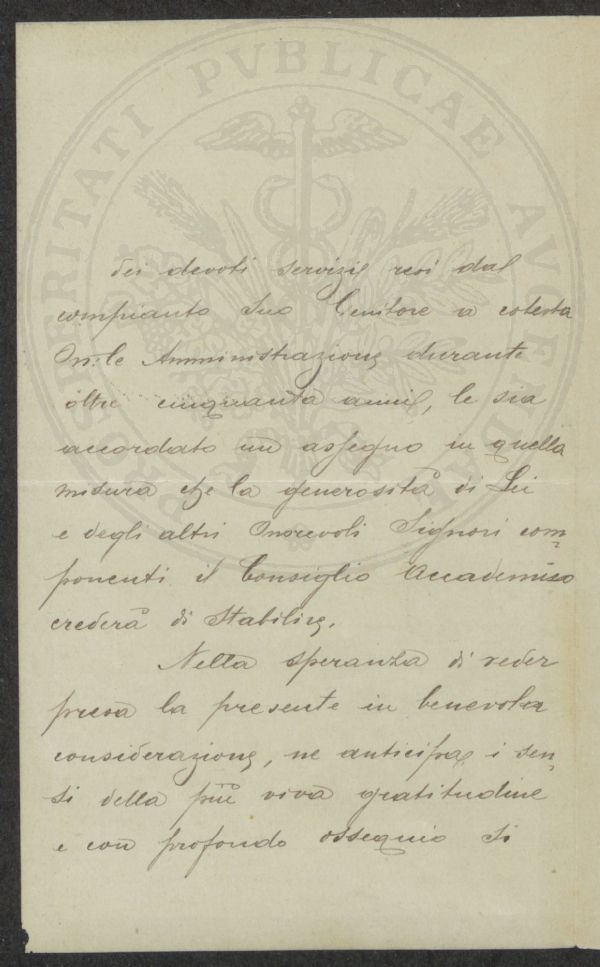 PROSPERITATI PVBLICAE AVGENDAE
dei devoti servizii resi dal
compianto suo Genitore a codesta
On:le Amministrazione durante
oltre cinquanta anni, le sia
accordato un assegno in quella
misura che la generosità di Lei
e degli altri Onorevoli Signori com=
ponenti il Consiglio Accademico
crederà di stabilire.
Nella speranza di veder
presa la presente in benevola
considerazione, ne anticipa i sen=
si della più viva gratitudine
e con profondo ossequio si